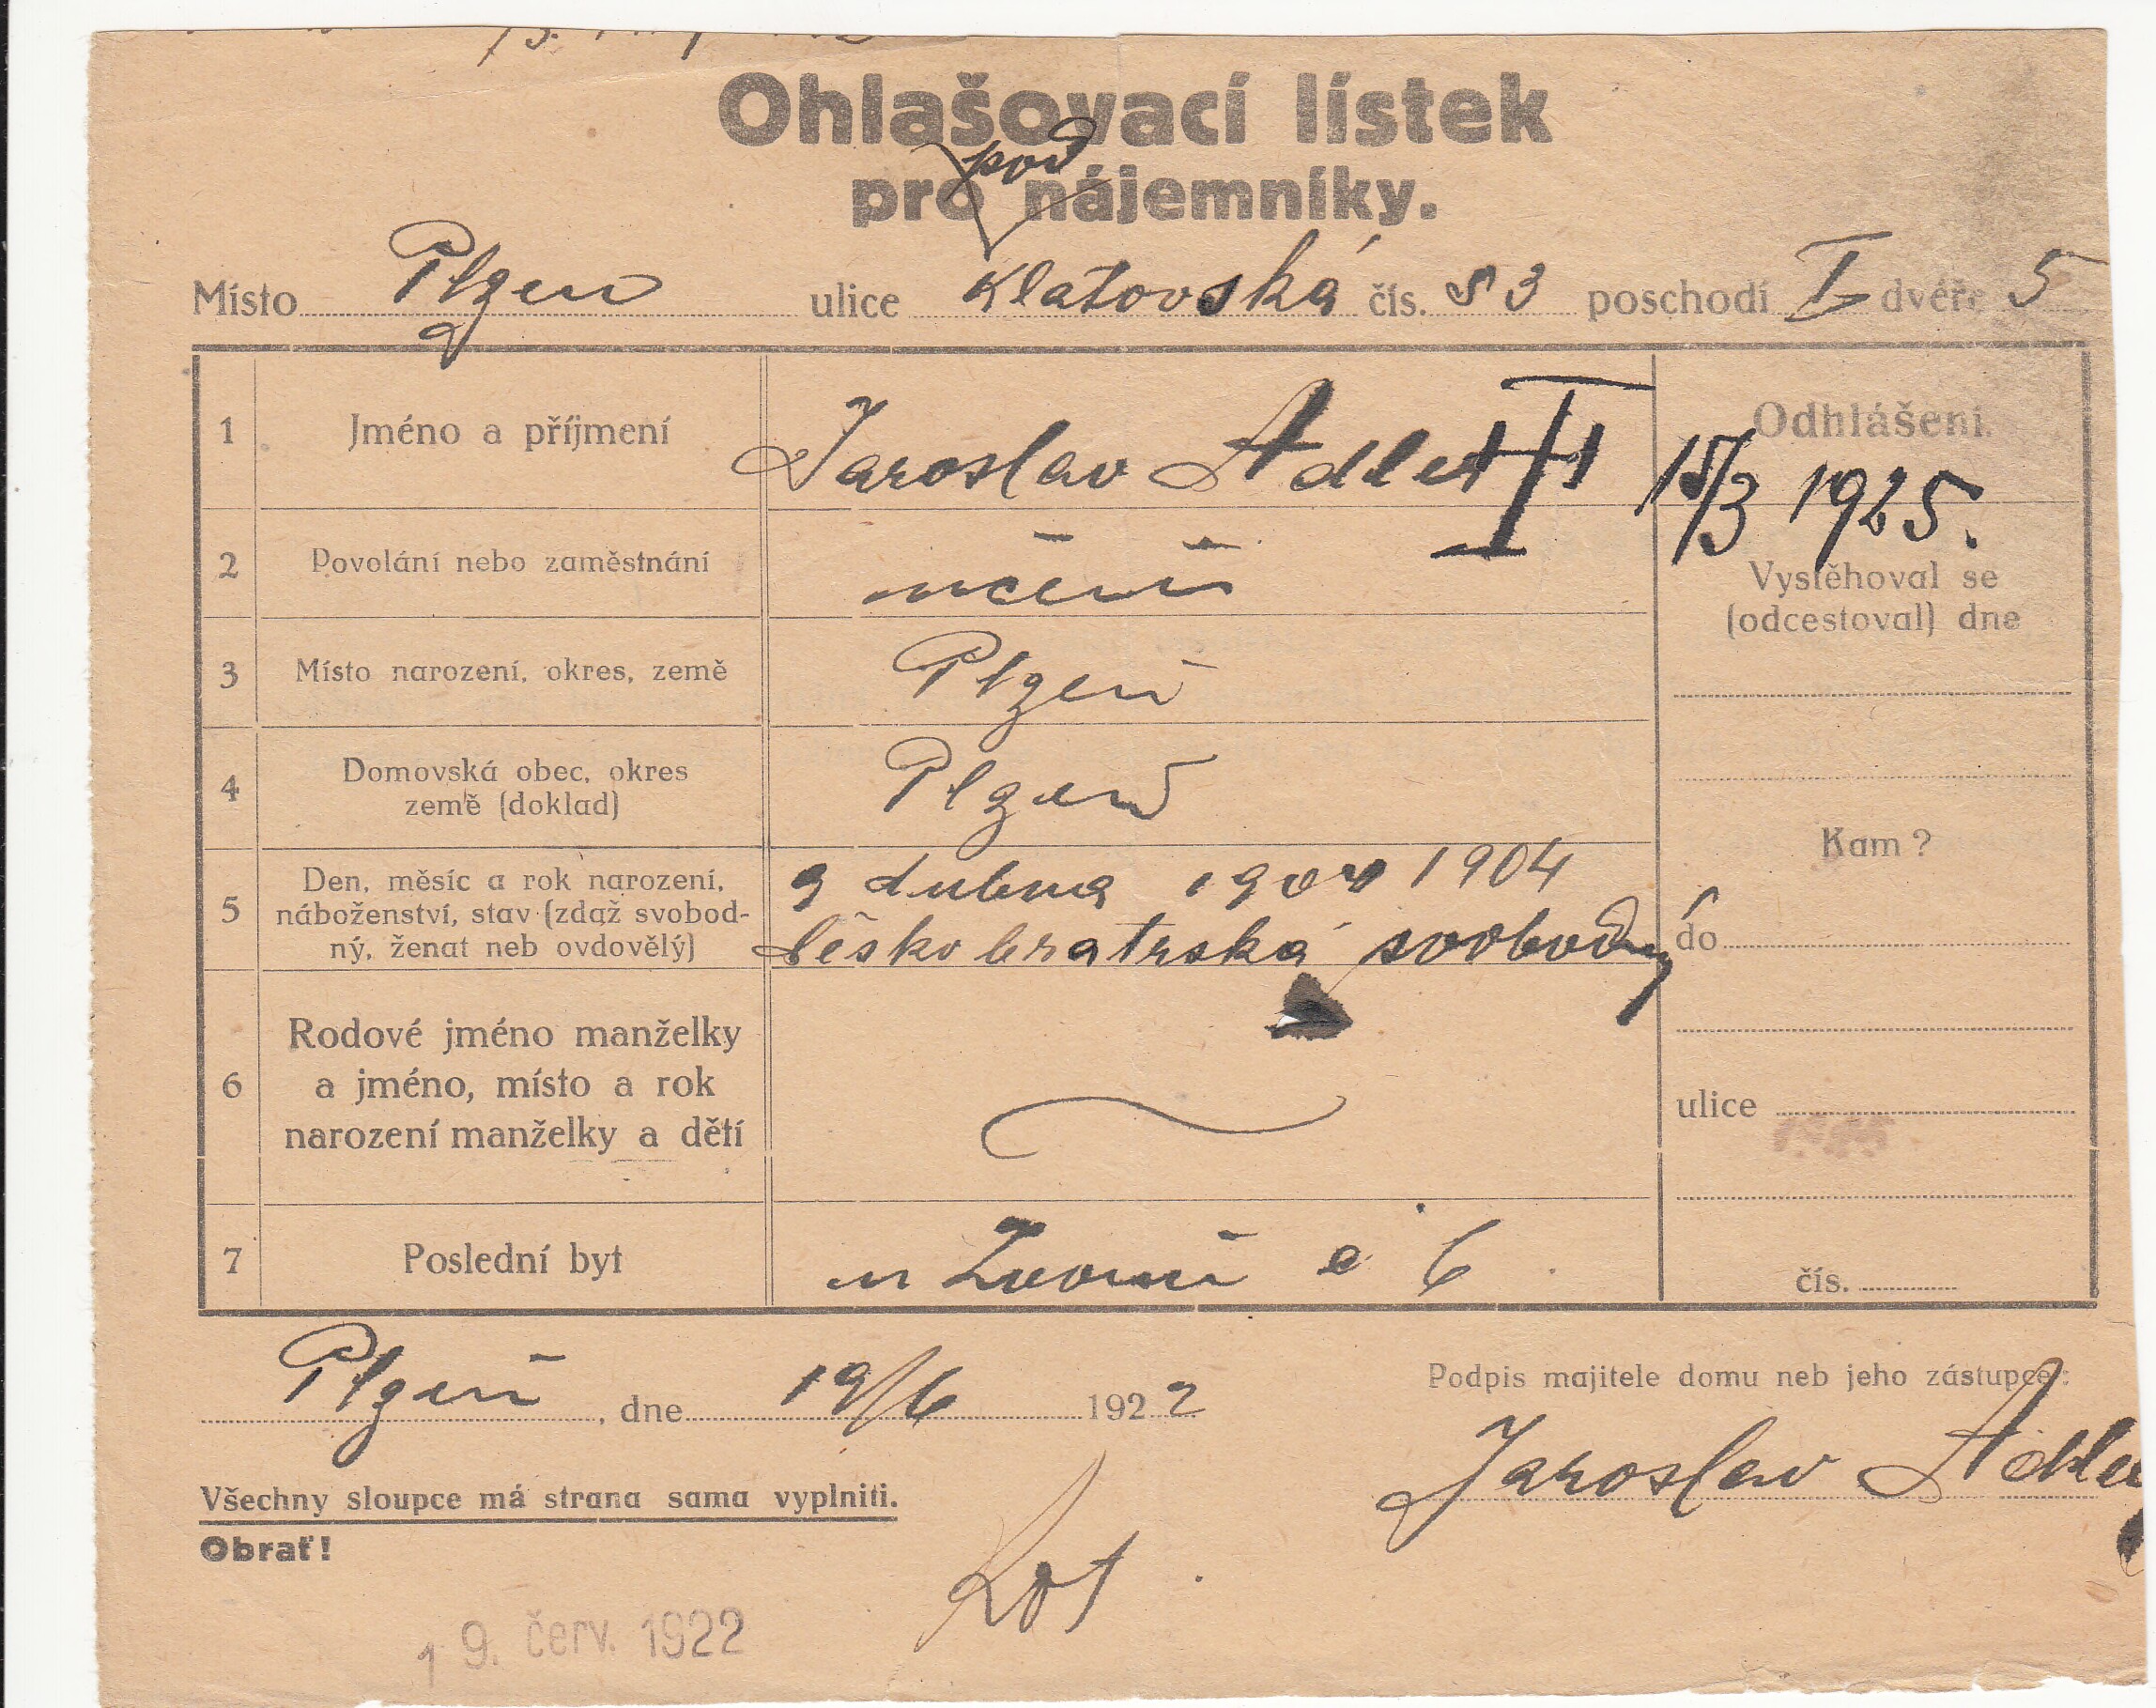 Ohlašovací lístek
pod
pro nájemníky.
Místo Plzen ulice Klatovská čís. 83 poschodí I. dvéře 5
1 Jméno a příjmení Jaroslav Adler
Odhlášení.
15/3 1925.
2 Povolání nebo zaměstnání
Vystěhoval se
(odcestoval) dne
3 Místo narození, okres, země Plzeň
4 Domovská obec, okres
země (doklad) Plzeň
Kam?
5 Den, měsíc a rok narození,
náboženství, stav (zdaž svobod-
ný, ženat neb ovdovělý)
9 dubna 1904
českobratrská svobodný
do
6 Rodové jméno manželky
a jméno, místo a rok
narození manželky a dětí
ulice
7 Poslední byt 6
čís.
Plzeň, dne 19/6 1922
Podpis majitele domu neb jeho zástupce:
Jaroslav Adler
Všechny sloupce má strana sama vyplniti.
Obrať!
19. červ. 1922